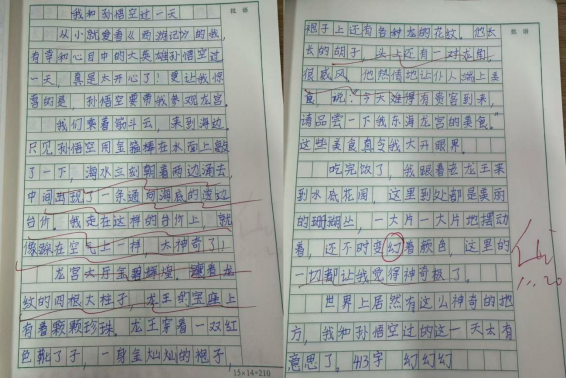 批语
我和孙悟空过一天
从小就爱看《西游记》的我，
有幸和心目中的大英雄孙悟空过
一天，真是太开心了！更让我惊
喜的是，孙悟空要带我参观龙宫。
我们乘着筋斗云，来到海边。
只见孙悟空用金箍棒在水面上敲
了一下，海水立刻朝着两边涌去，
中间出现了一条通向海底的透边
台阶。我走在这样的台阶上，就
像踩在空气上一样，太神奇了！
龙宫大厅金碧辉煌，
纹的四根大柱子，龙王的宝座上
有着颗颗珍珠。龙王穿着一双红
色靴子，一身金灿灿的袍子，
15×14=210
批语
袍子上还有各种龙的花纹，他太
太的胡子，头上还有一对龙角，
很威风。他热情地让仆人端上美
食，说：“今天难得有贵宾到来，
请品尝一下我东海龙宫的美食。”
这些美食真令我大开眼界。
吃完饭了，我跟着老龙王来
到水底花园。这里到处都是美丽
的珊瑚丛，一大片一大片地摆动
着，还不时变幻着颜色，这里的
一切都让我觉得神奇极了。
世界上居然有这么神奇的地
方，我和孙悟空过的这一天太有
意思了。413字 幻幻幻